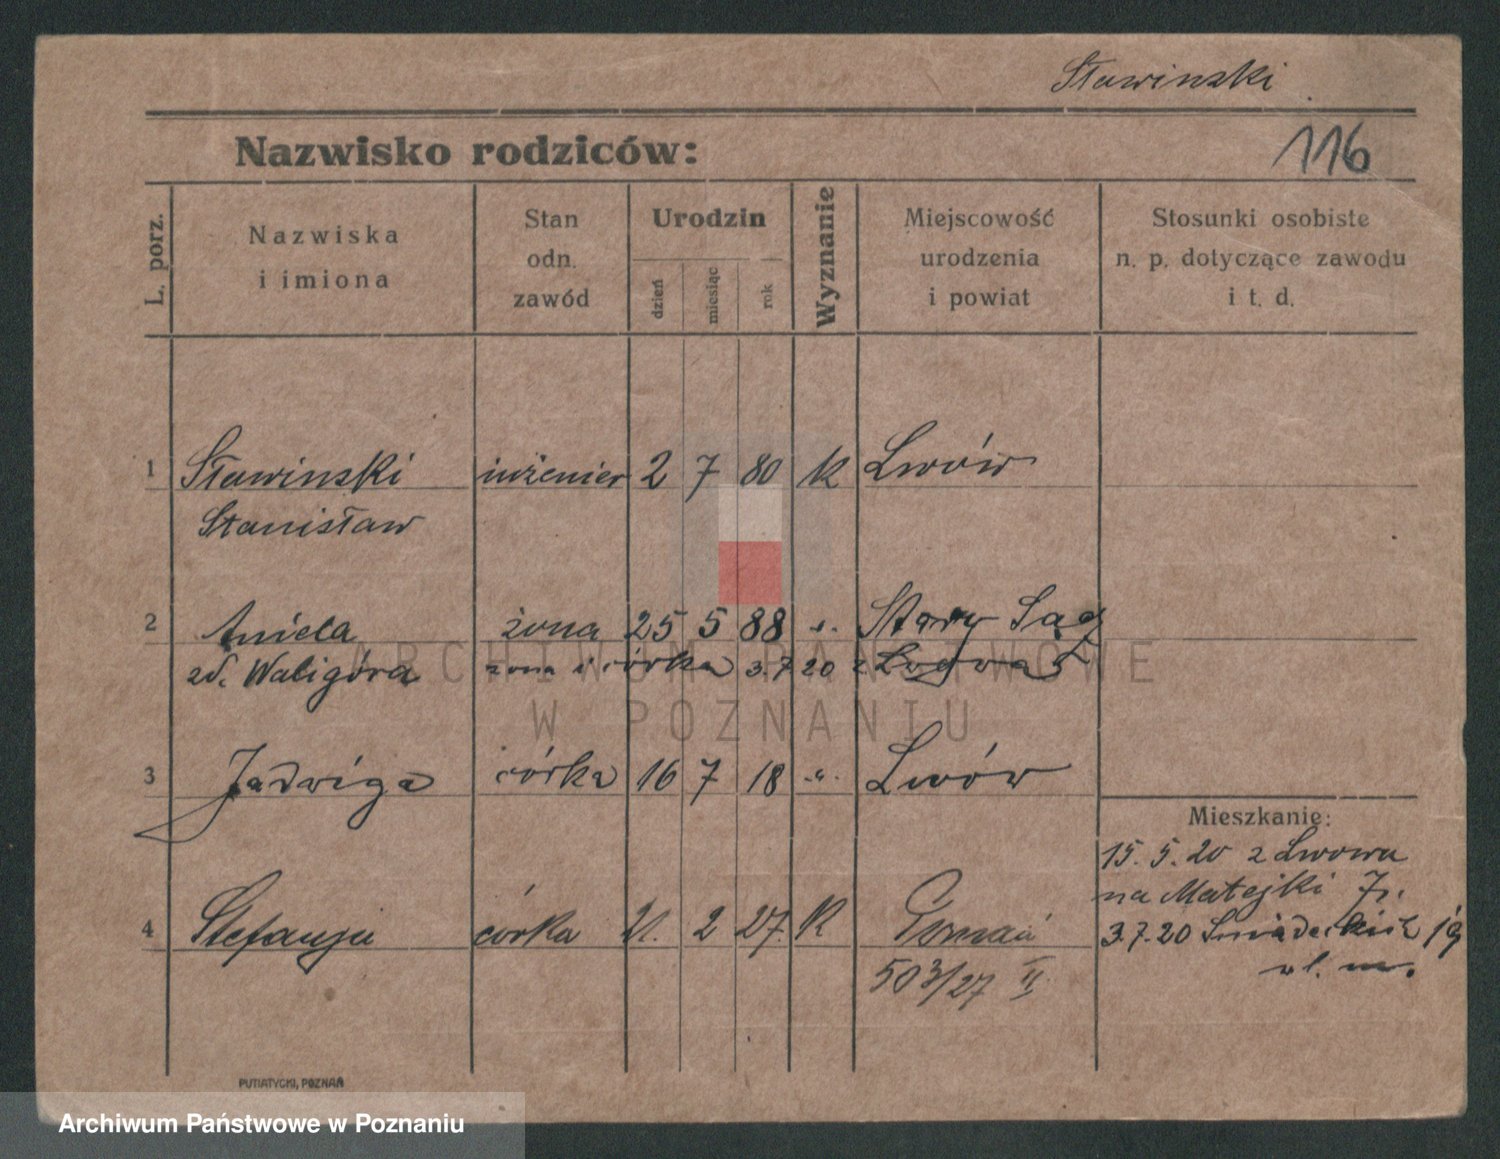 Sławinski
116
Nazwisko rodziców:
L. porz.
Nazwiska
i imiona
Stan
odn.
zawód
Urodzin
dzień
miesiąc
rok
Wyznanie
Miejscowość
urodzenia
i powiat
Stosunki osobiste
n. p. dotyczące zawodu
i t. d.
1 Sławinski inżenier 2 7 80 k Lwów
Stanisław
2 Aniela żona 25 5 88 -"- Stary Sącz
zd. Waligóra żona i córka 3.7 20 z Lwowa
3 Jadwiga córka 16 7 18 -"- Lwów
Mieszkanie:
15. 5. 20 z Lwowa
na Matejki
4 Stefanja córka 21. 2 27. K Poznań
3.7.20 Śniadeckich
503/27 II
PUTIATYCKI, POZNAŃ
ARCHIWUM PAŃSTWOWE
W POZNANIU
Archiwum Państwowe w Poznaniu